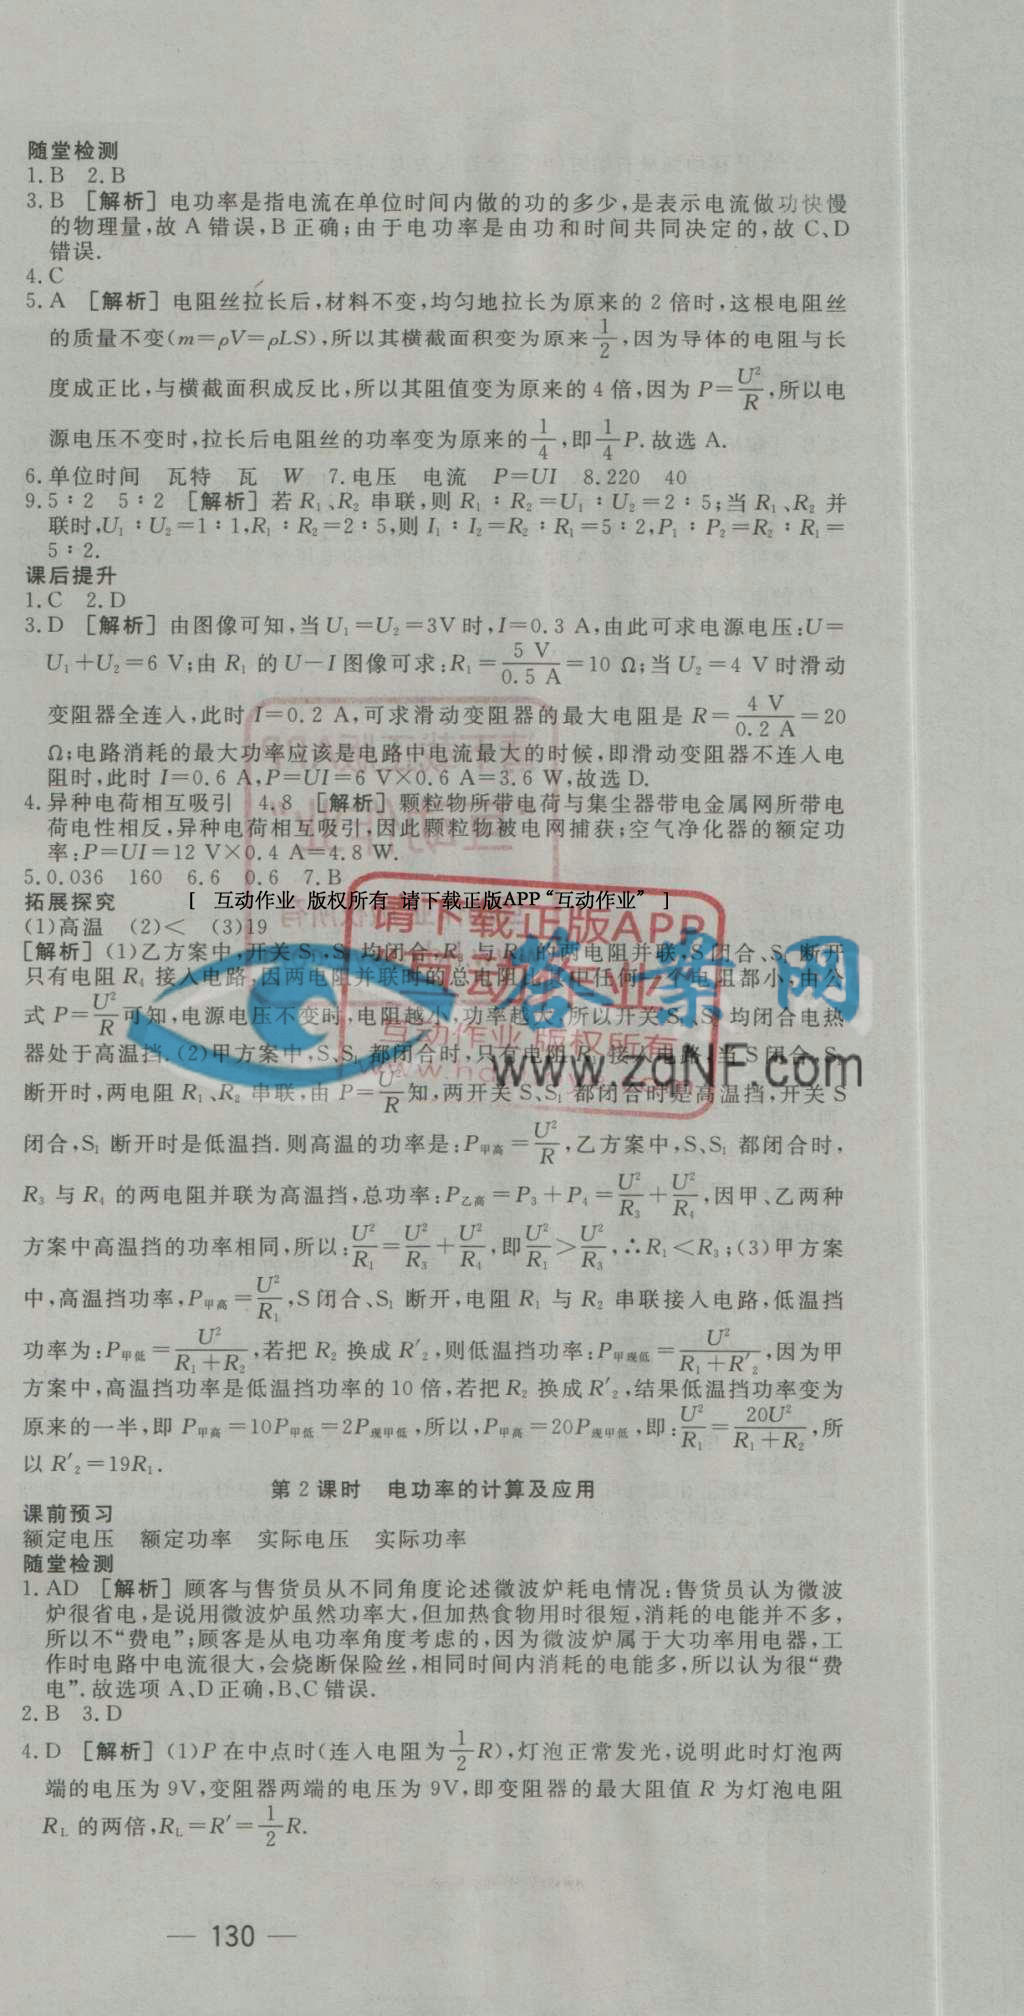 随堂检测
1.B 2.B
3.B [解析] 电功率是指电流在单位时间内做的功的多少,是表示电流做功快慢
的物理量,故 A 错误,B 正确;由于电功率是由功和时间共同决定的,故 C、D
错误.
4.C
5.A [解析] 电阻丝拉长后,材料不变,均匀地拉长为原来的 2 倍时,这根电阻丝
的质量不变(m=ρV=ρLS),所以其横截面积变为原来 1/2,因为导体的电阻与长
度成正比,与横截面积成反比,所以其阻值变为原来的 4 倍,因为 P=U²/R,所以电
源电压不变时,拉长后电阻丝的功率变为原来的 1/4,即 1/4 P.故选 A.
6.单位时间 瓦特 瓦 W 7.电压 电流 P=UI 8.220 40
9.5∶2 5∶2 [解析] 若 R₁、R₂ 串联,则 R₁∶R₂=U₁∶U₂=2∶5;当 R₁、R₂ 并
联时,U₁∶U₂=1∶1,R₁∶R₂=2∶5,则 I₁∶I₂=R₂∶R₁=5∶2,P₁∶P₂=R₂∶R₁=
5∶2.
课后提升
1.C 2.D
3.D [解析] 由图像可知,当 U₁=U₂=3V 时,I=0.3 A,由此可求电源电压:U=
U₁+U₂=6 V;由 R₁ 的 U-I 图像可求:R₁=5 V/0.5 A=10 Ω;当 U₂=4 V 时滑动
变阻器全连入,此时 I=0.2 A,可求滑动变阻器的最大电阻是 R=4 V/0.2 A=20
Ω;电路消耗的最大功率应该是电路中电流最大的时候,即滑动变阻器不连入电
阻时,此时 I=0.6 A,P=UI=6 V×0.6 A=3.6 W,故选 D.
4.异种电荷相互吸引 4.8 [解析] 颗粒物所带电荷与集尘器带电金属网所带电
荷电性相反,异种电荷相互吸引,因此颗粒物被电网捕获;空气净化器的额定功
率:P=UI=12 V×0.4 A=4.8 W.
5.0.036 160 6.6 0.6 7.B
拓展探究
[ 互动作业 版权所有 请下载正版APP“互动作业” ]
(1)高温 (2)< (3)19
请下载正版APP
互动作业
互动作业 版权所有
答案网
www.zqNF.com
[解析] (1)乙方案中,开关 S₁、S 均闭合,R₃ 与 R₄ 的两电阻并联,S 闭合、S₁ 断开
只有电阻 R₄ 接入电路,因两电阻并联时的总电阻比其中任何一个电阻都小,由公
式 P=U²/R 可知,电源电压不变时,电阻越小,功率越大,所以开关 S、S₁ 均闭合电热
器处于高温挡.(2)甲方案中,S、S₁ 都闭合时,只有电阻 R₁ 接入电路,当 S 闭合、S₁
断开时,两电阻 R₁、R₂ 串联,由 P=U²/R 知,两开关 S、S₁ 都闭合时是高温挡,开关 S
闭合,S₁ 断开时是低温挡.则高温的功率是:P甲高=U²/R,乙方案中,S、S₁ 都闭合时,
R₃ 与 R₄ 的两电阻并联为高温挡,总功率:P乙高=P₃+P₄=U²/R₃+U²/R₄,因甲、乙两种
方案中高温挡的功率相同,所以:U²/R₁=U²/R₃+U²/R₄,即 U²/R₁>U²/R₃,∴R₁<R₃;(3)甲方案
中,高温挡功率,P甲高=U²/R₁,S 闭合、S₁ 断开,电阻 R₁ 与 R₂ 串联接入电路,低温挡
功率为:P甲低=U²/(R₁+R₂),若把 R₂ 换成 R′₂,则低温挡功率:P甲现低=U²/(R₁+R′₂),因为甲
方案中,高温挡功率是低温挡功率的 10 倍,若把 R₂ 换成 R′₂,结果低温挡功率变为
原来的一半,即 P甲高=10P甲低=2P现甲低,所以,P甲高=20P现甲低,即:U²/R₁=20U²/(R₁+R₂),所
以 R′₂=19R₁.
第 2 课时 电功率的计算及应用
课前预习
额定电压 额定功率 实际电压 实际功率
随堂检测
1.AD [解析] 顾客与售货员从不同角度论述微波炉耗电情况:售货员认为微波
炉很省电,是说用微波炉虽然功率大,但加热食物用时很短,消耗的电能并不多,
所以不“费电”;顾客是从电功率角度考虑的,因为微波炉属于大功率用电器,工
作时电路中电流很大,会烧断保险丝,相同时间内消耗的电能多,所以认为很“费
电”.故选项 A、D 正确,B、C 错误.
2.B 3.D
4.D [解析] (1)P 在中点时(连入电阻为 1/2 R),灯泡正常发光,说明此时灯泡两
端的电压为 9V,变阻器两端的电压为 9V,即变阻器的最大阻值 R 为灯泡电阻
R_L 的两倍,R_L=R′=1/2 R.
— 130 —